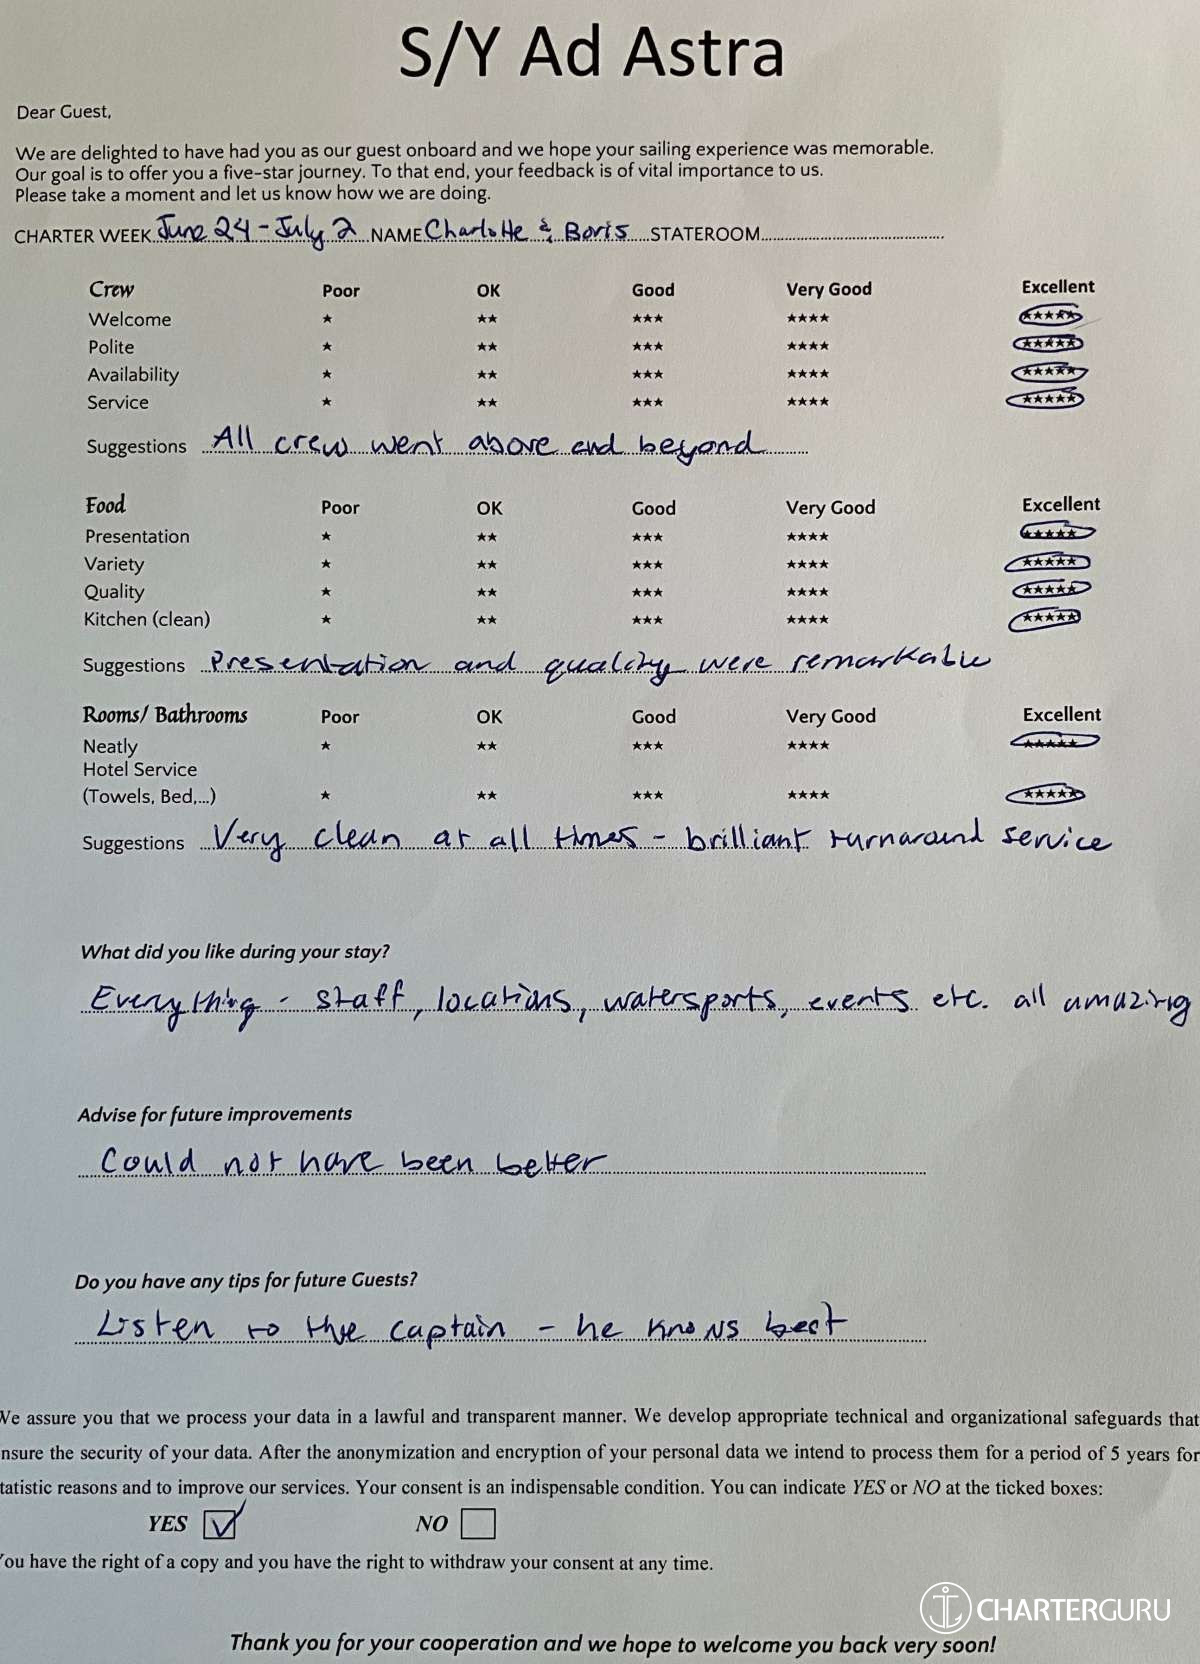 S/Y Ad Astra
Dear Guest,
We are delighted to have had you as our guest onboard and we hope your sailing experience was memorable.
Our goal is to offer you a five-star journey. To that end, your feedback is of vital importance to us.
Please take a moment and let us know how we are doing.
CHARTER WEEK June 24 - July 2 NAME Charlotte & Boris STATEROOM
Crew Poor OK Good Very Good Excellent
Welcome ★ ★★ ★★★ ★★★★ ★★★★★
Polite ★ ★★ ★★★ ★★★★ ★★★★★
Availability ★ ★★ ★★★ ★★★★ ★★★★★
Service ★ ★★ ★★★ ★★★★ ★★★★★
Suggestions All crew went above and beyond
Food Poor OK Good Very Good Excellent
Presentation ★ ★★ ★★★ ★★★★ ★★★★★
Variety ★ ★★ ★★★ ★★★★ ★★★★★
Quality ★ ★★ ★★★ ★★★★ ★★★★★
Kitchen (clean) ★ ★★ ★★★ ★★★★ ★★★★★
Suggestions Presentation and quality were remarkable
Rooms/ Bathrooms Poor OK Good Very Good Excellent
Neatly ★ ★★ ★★★ ★★★★ ★★★★★
Hotel Service
(Towels, Bed,...) ★ ★★ ★★★ ★★★★ ★★★★★
Suggestions Very clean at all times - brilliant turnaround service
What did you like during your stay?
Everything - staff, locations, watersports, events etc. all amazing
Advise for future improvements
Could not have been better
Do you have any tips for future Guests?
Listen to the captain - he knows best
We assure you that we process your data in a lawful and transparent manner. We develop appropriate technical and organizational safeguards that
nsure the security of your data. After the anonymization and encryption of your personal data we intend to process them for a period of 5 years for
tatistic reasons and to improve our services. Your consent is an indispensable condition. You can indicate YES or NO at the ticked boxes:
YES NO
You have the right of a copy and you have the right to withdraw your consent at any time.
CHARTERGURU
Thank you for your cooperation and we hope to welcome you back very soon!